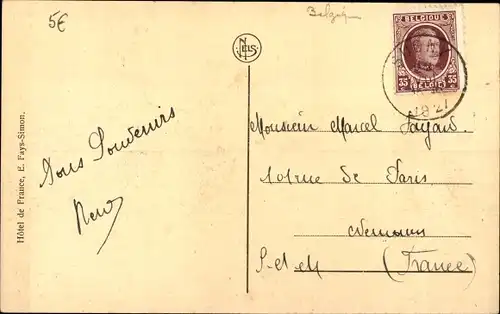 5€
Belgique
BELGIQUE
35 35
BELGIË
1927
NELS
Hôtel de France, E. Fays-Simon.
Bons Souvenirs
Monsieur Marcel
rue de Paris
S-et-M (France)